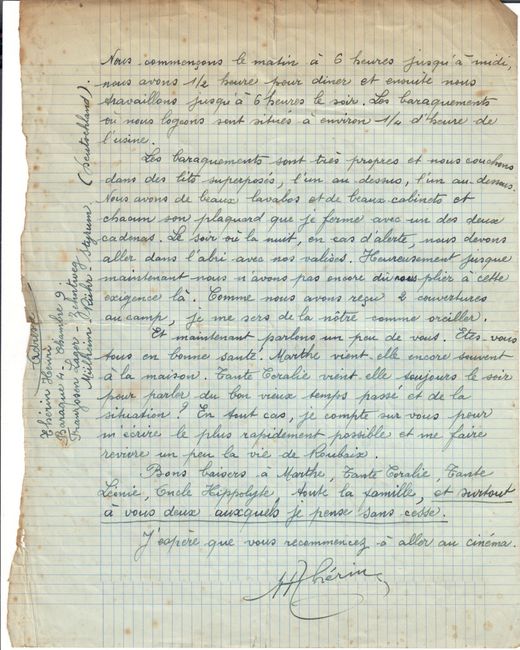 Nous commençons le matin à 6 heures jusqu'à midi,
nous avons 1/2 heure pour diner et ensuite nous
travaillons jusqu'à 6 heures le soir. Les baraquements
où nous logeons sont situés à environ 1/4 d'heure de
l'usine.
Les baraquements sont très propres et nous couchons
dans des lits superposés, l'un au-dessus, l'un au-dessous.
Nous avons de beaux lavabos et de beaux cabinets et
chacun son plaquard que je ferme avec un des deux
cadenas. Le soir où la nuit, en cas d'alerte, nous devons
aller dans l'abri avec nos valises. Heureusement jusque
maintenant nous n'avons pas encore dû nous plier à cette
exigence là. Comme nous avons reçu 2 couvertures
au camp, je me sers de la nôtre comme oreiller.
Et maintenant parlons un peu de vous. Etes-vous
tous en bonne santé. Marthe vient-elle encore souvent
à la maison. Tante Coralie vient-elle toujours le soir
pour parler du bon vieux temps passé et de la
situation ? En tout cas, je compte sur vous pour
m'écrire le plus rapidement possible et me faire
revivre un peu la vie de Roubaix.
Bons baisers à Marthe, Tante Coralie, Tante
Léonie, Oncle Hippolyte, toute la famille, et surtout
à vous deux auxquels je pense sans cesse.
J'espère que vous recommencez à aller au cinéma.
HThérin
Adresse
Thérin Henri
Baraque 4 - Chambre 9.
Franzosen Lager - Zehntweg
Mülheim Ruhr Styrum (Deutschland).